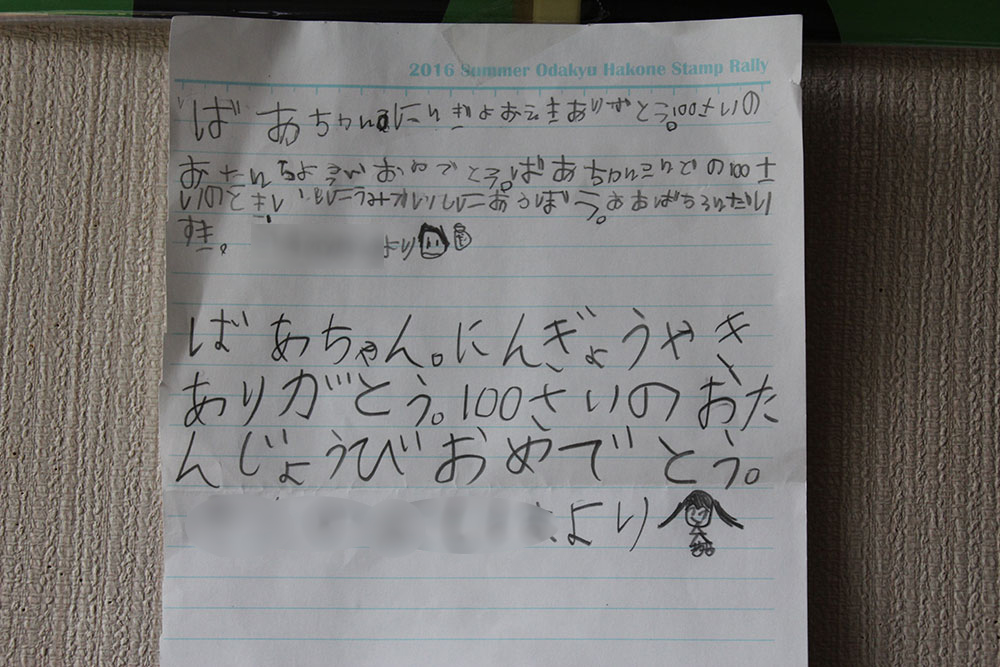 2016 Summer Odakyu Hakone Stamp Rally
ばあちゃんにんぎょおやきありがとう。100さいの
おたん おめでとう。ばあちゃん の100さ
いのとき あそぼう。 だい
すき。
より
ばあちゃん。にんぎょうやき
ありがとう。100さいのおた
んじょうびおめでとう。
より